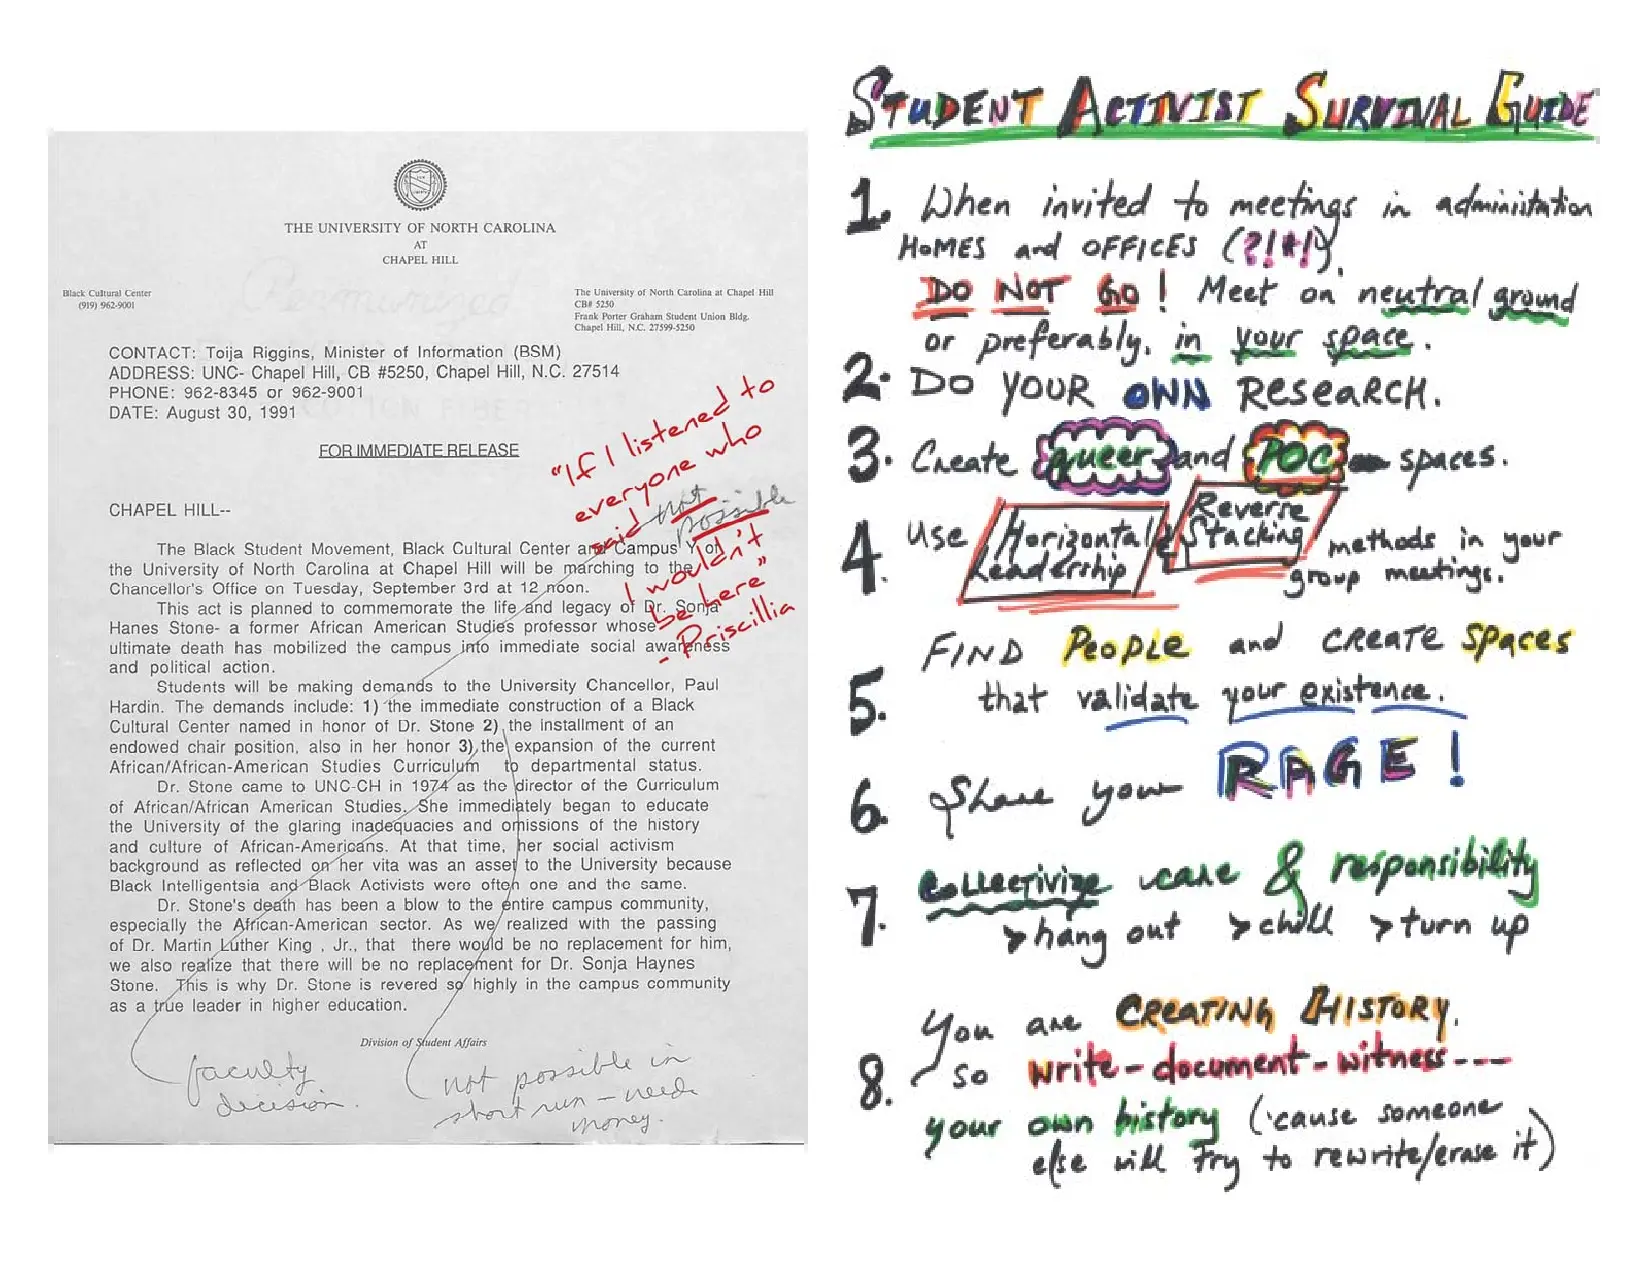 THE UNIVERSITY OF NORTH CAROLINA
AT
CHAPEL HILL
Black Cultural Center
(919) 962-9001
The University of North Carolina at Chapel Hill
CB# 5250
Frank Porter Graham Student Union Bldg.
Chapel Hill, N.C. 27599-5250
CONTACT: Toija Riggins, Minister of Information (BSM)
ADDRESS: UNC- Chapel Hill, CB #5250, Chapel Hill, N.C. 27514
PHONE: 962-8345 or 962-9001
DATE: August 30, 1991
FOR IMMEDIATE RELEASE
"If I listened to
everyone who
said not
possible
I wouldn't
be here"
- Priscillia
CHAPEL HILL--
The Black Student Movement, Black Cultural Center and Campus Y of
the University of North Carolina at Chapel Hill will be marching to the
Chancellor's Office on Tuesday, September 3rd at 12 noon.
This act is planned to commemorate the life and legacy of Dr. Sonja
Hanes Stone- a former African American Studies professor whose
ultimate death has mobilized the campus into immediate social awareness
and political action.
Students will be making demands to the University Chancellor, Paul
Hardin. The demands include: 1) the immediate construction of a Black
Cultural Center named in honor of Dr. Stone 2) the installment of an
endowed chair position, also in her honor 3) the expansion of the current
African/African-American Studies Curriculum to departmental status.
Dr. Stone came to UNC-CH in 1974 as the director of the Curriculum
of African/African American Studies. She immediately began to educate
the University of the glaring inadequacies and omissions of the history
and culture of African-Americans. At that time, her social activism
background as reflected on her vita was an asset to the University because
Black Intelligentsia and Black Activists were often one and the same.
Dr. Stone's death has been a blow to the entire campus community,
especially the African-American sector. As we realized with the passing
of Dr. Martin Luther King , Jr., that there would be no replacement for him,
we also realize that there will be no replacement for Dr. Sonja Haynes
Stone. This is why Dr. Stone is revered so highly in the campus community
as a true leader in higher education.
Division of Student Affairs
faculty
decision.
not possible in
short run - needs
money.
STUDENT ACTIVIST SURVIVAL GUIDE
1. When invited to meetings in administation
HOMES and OFFICES (?!*!),
DO NOT GO! Meet on neutral ground
or preferably, in your space.
2. DO YOUR OWN RESEARCH.
3. Create queer and POC spaces.
4. Use Horizontal Leadership & Reverse Stacking methods in your
group meetings.
5. FIND PEOPLE and CREATE SPACES
that validate your existence.
6. Share your RAGE!
7. Collectivize care & responsibility
> hang out > chill > turn up
8. You are CREATING HISTORY.
So write - document - witness ---
your own history ('cause someone
else will try to rewrite/erase it)